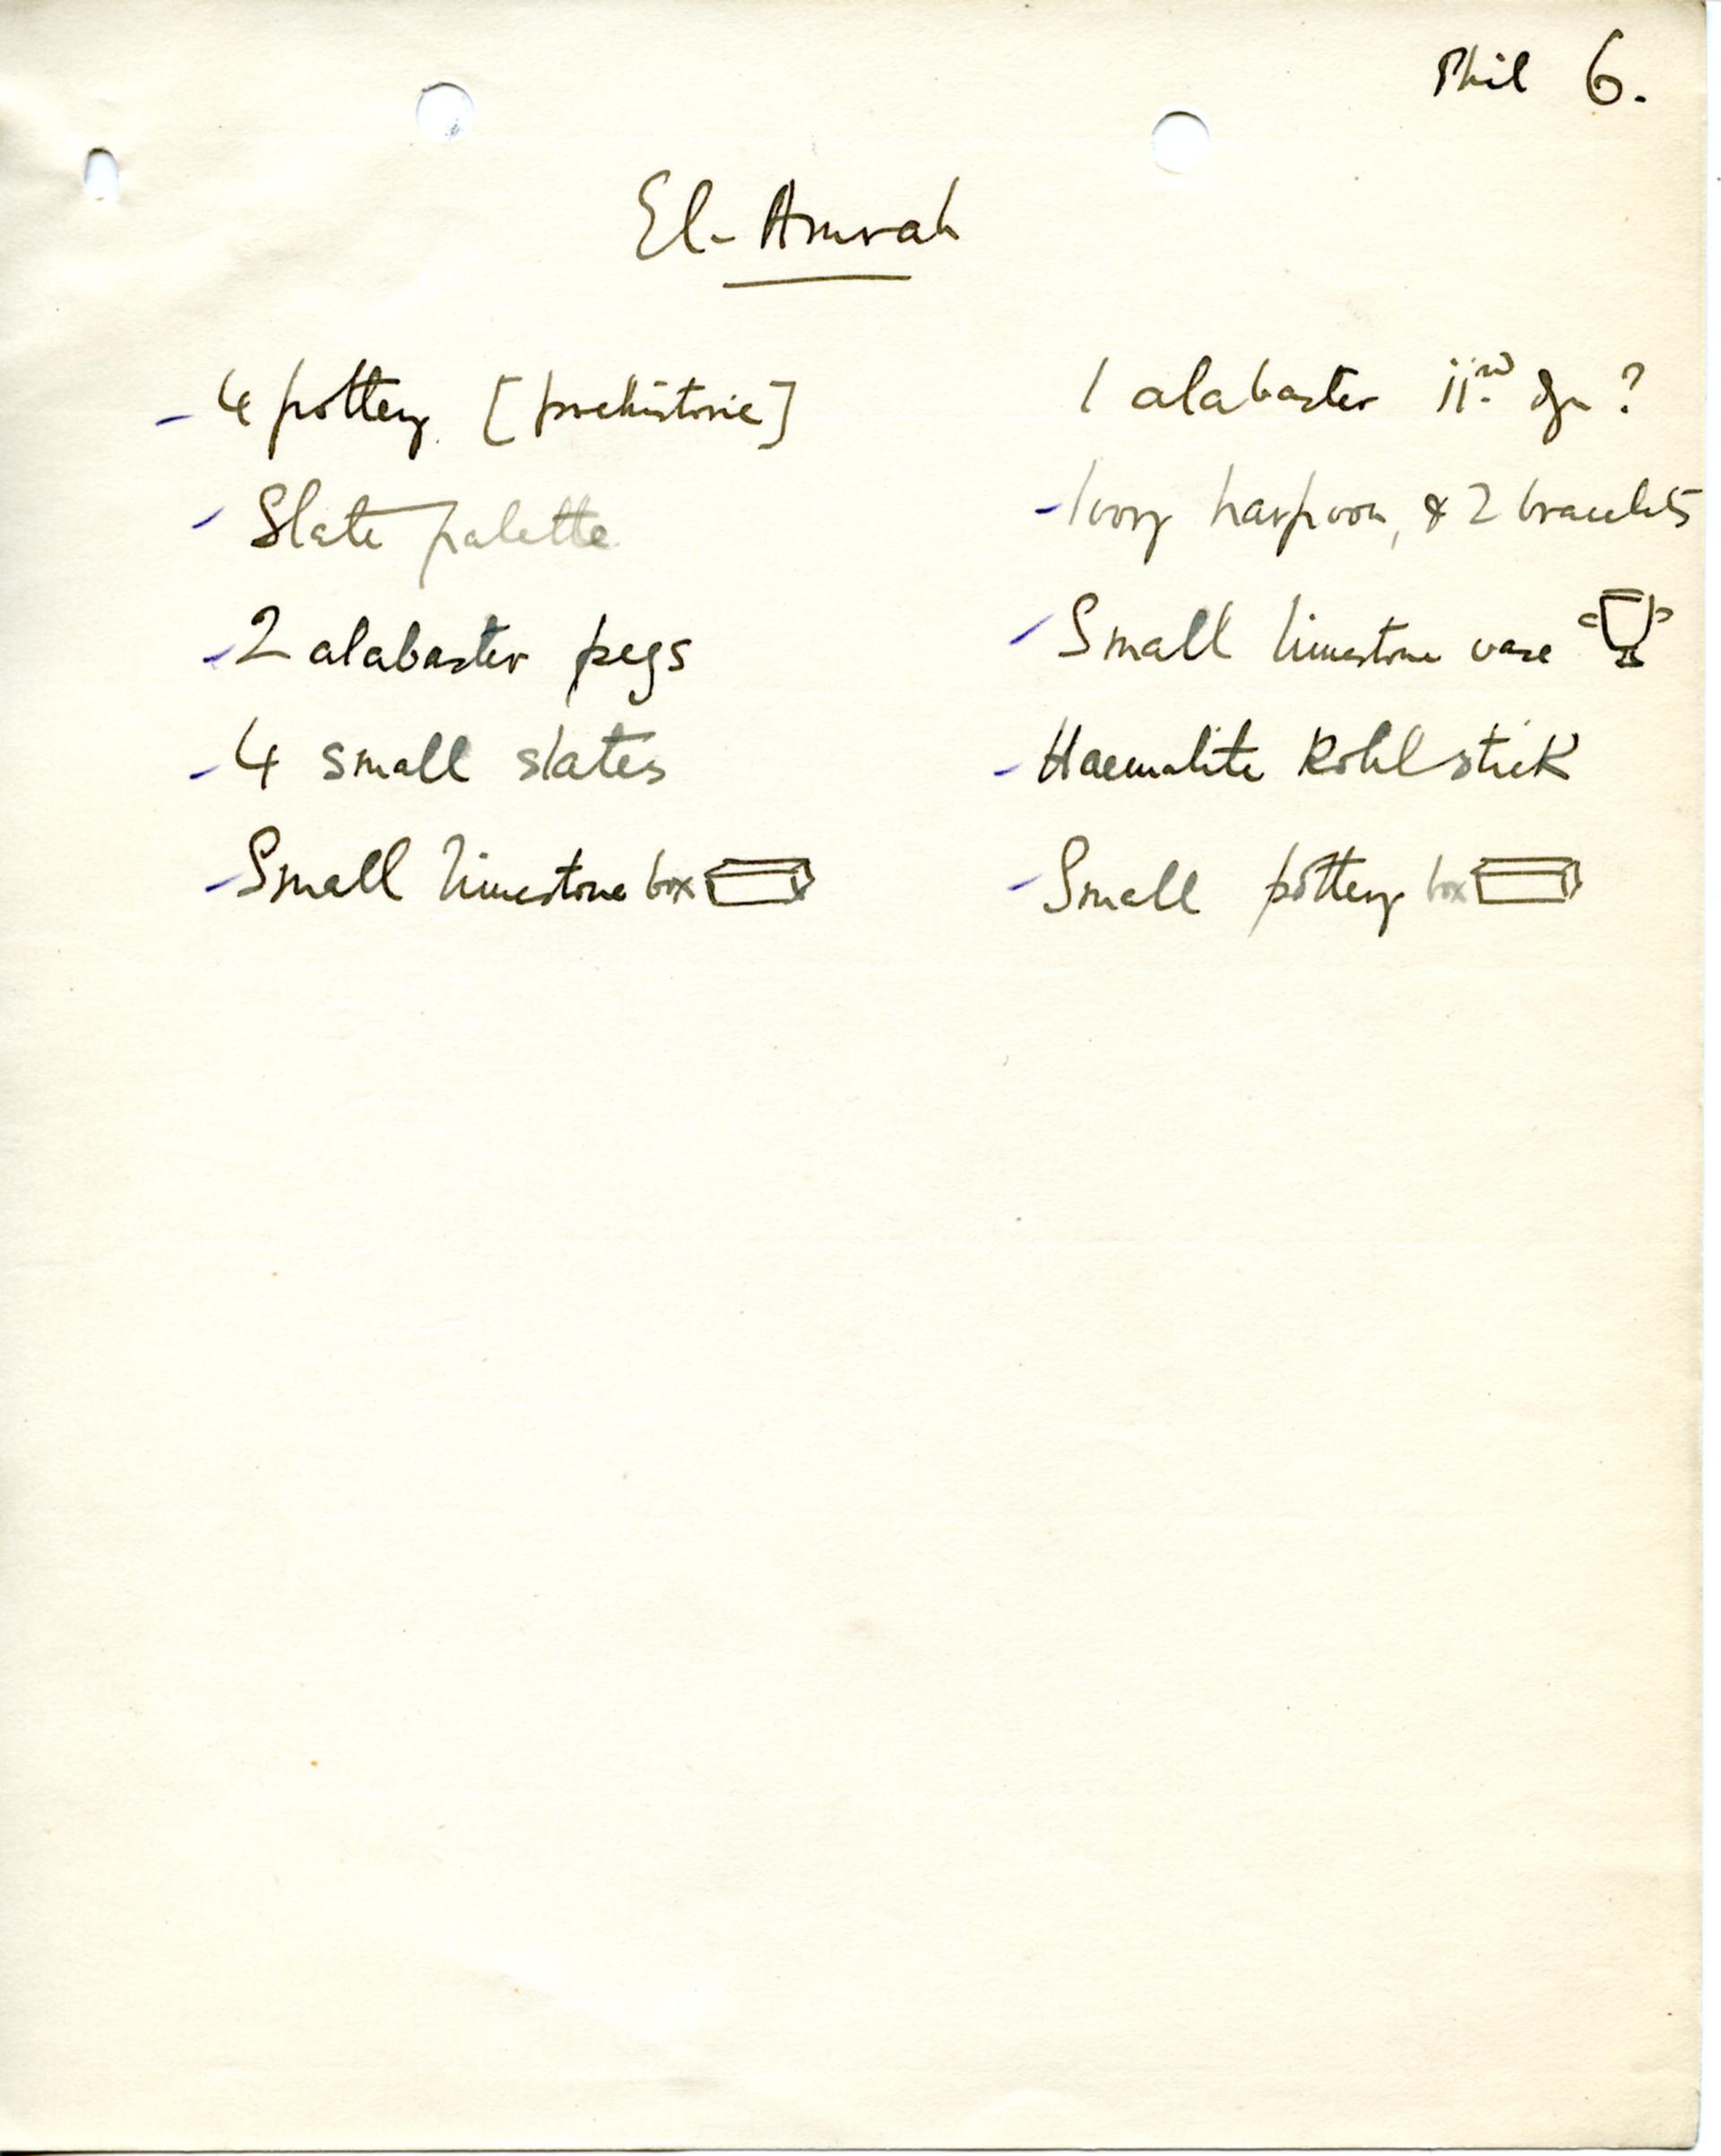 Phil 6.
El-Amrah
- 4 pottery [prehistoric]
- Slate palette
- 2 alabaster pegs
- 4 small slates
- Small limestone box
1 alabaster iind dyn ?
- Ivory harpoon, & 2 bracelets
- Small limestone vase
- Haematite Kohl stick
- Small pottery box